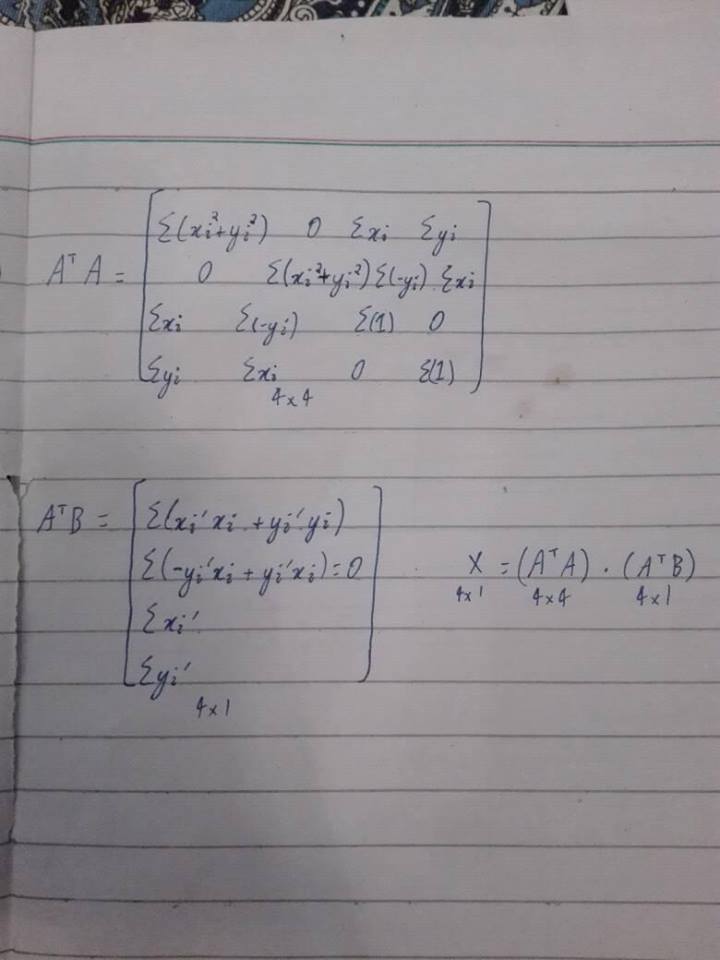 AᵀA = [ Σ(xi²+yi²) 0 Σxi Σyi
0 Σ(xi²+yi²) Σ(-yi) Σxi
Σxi Σ(-yi) Σ(1) 0
Σyi Σxi 0 Σ(1) ]
4x4
AᵀB = [ Σ(xi'xi + yi'yi)
Σ(-yi'xi + yi'xi) = 0
Σxi'
Σyi' ]
4x1
X = (AᵀA) . (AᵀB)
4x1 4x4 4x1